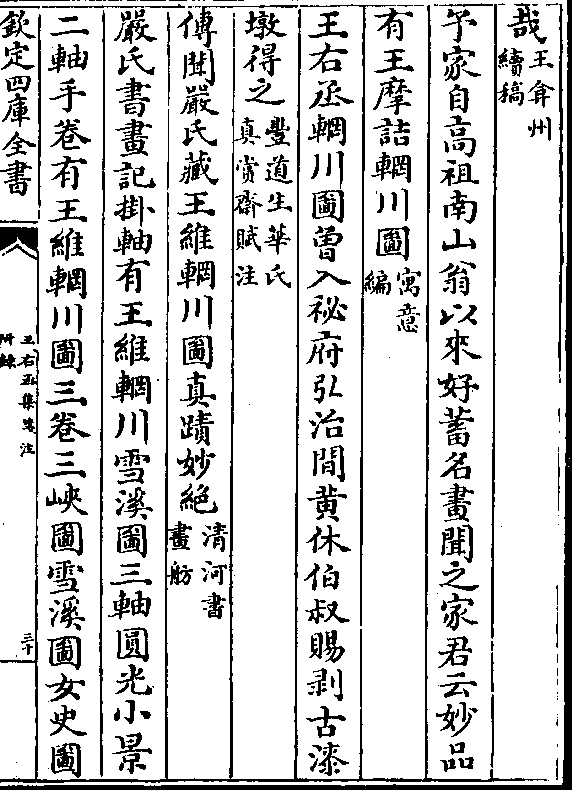 哉王弇州續稿
予家自高祖南山翁以來好蓄名畫聞之家君云妙品
有王摩詰輞川圖寓意編
王右丞輞川圖曾入祕府弘治間黄休伯叔賜剥古漆
墩得之豐道生華氏真賞齋賦注
傳聞嚴氏藏王維輞川圖真蹟妙絶清河書畫舫
嚴氏書畫記掛軸有王維輞川雪溪圖三軸圓光小景
二軸手卷有王維輞川圖三卷三峽圖雪溪圖女史圖
欽定四庫全書
王右丞集箋注
附錄
三十